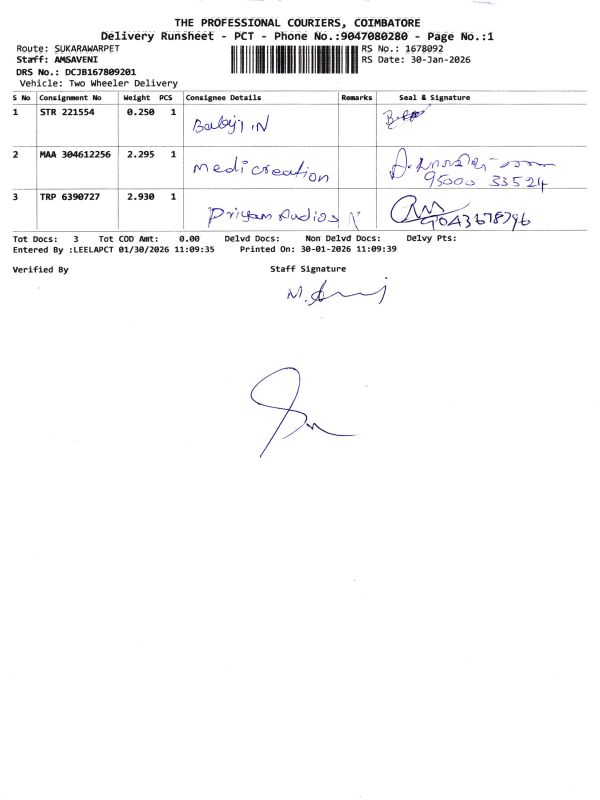 THE PROFESSIONAL COURIERS, COIMBATORE
Delivery Runsheet - PCT - Phone No.:9047080280 - Page No.:1
Route: SUKARAWARPET RS No.: 1678092
Staff: AMSAVENI RS Date: 30-Jan-2026
DRS No.: DCJB167809201
Vehicle: Two Wheeler Delivery
S No Consignment No Weight PCS Consignee Details Remarks Seal & Signature
1 STR 221554 0.250 1 Babyj IN
2 MAA 304612256 2.295 1 medicreation
95000 33524
3 TRP 6390727 2.930 1 Priyam Audios
9043678796
Tot Docs: 3 Tot COD Amt: 0.00 Delvd Docs: Non Delvd Docs: Delvy Pts:
Entered By :LEELAPCT 01/30/2026 11:09:35 Printed On: 30-01-2026 11:09:39
Verified By Staff Signature